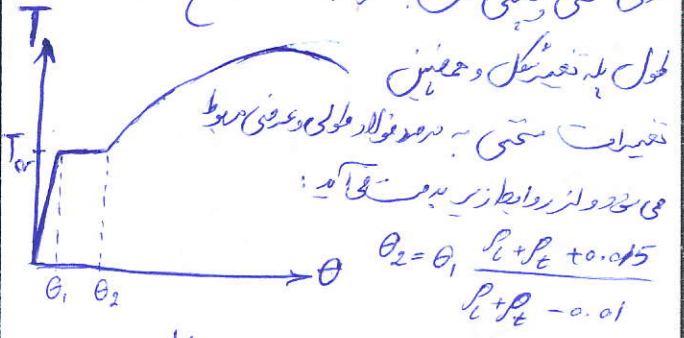 T
طول پله تغییر شکل و همچنین
تغییرات منحنی به درصد فولاد طولی و عرضی مربوط
T_cr
می شود و از روابط زیر بدست می آید :
θ₂ = θ₁ (ρ_l + ρ_t + 0.015) / (ρ_l + ρ_t − 0.01)
θ
θ₁ θ₂